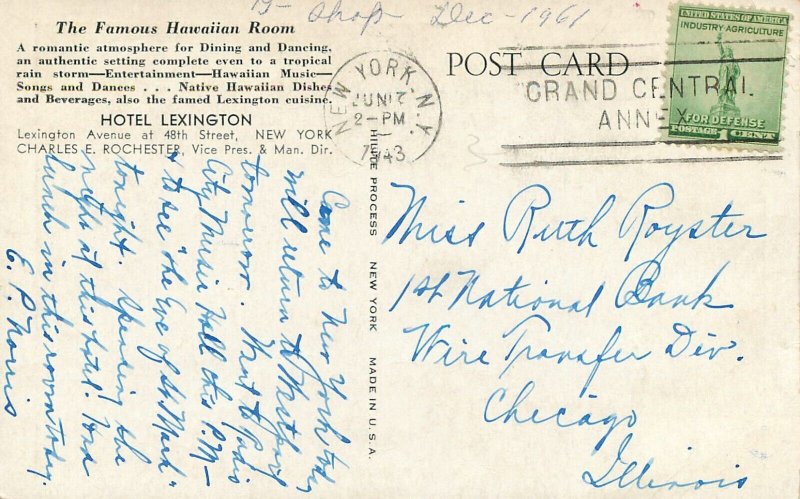 Shop Dec - 1961
The Famous Hawaiian Room
A romantic atmosphere for Dining and Dancing,
an authentic setting complete even to a tropical
rain storm—Entertainment—Hawaiian Music—
Songs and Dances . . . Native Hawaiian Dishes
and Beverages, also the famed Lexington cuisine.
HOTEL LEXINGTON
Lexington Avenue at 48th Street, NEW YORK
CHARLES E. ROCHESTER, Vice Pres. & Man. Dir.
Came to New York today
will return to
tomorrow. Went to Radio
City Music Hall this P.M—
to see "the Eve of St. Mark"
tonight. Spending the
night at this hotel. Had
lunch in this room today.
E. P. Norris
HILITE PROCESS NEW YORK MADE IN U.S.A.
POST CARD
NEW YORK, N.Y.
JUN 17
2-PM
1943
GRAND CENTRAL
ANNEX
UNITED STATES OF AMERICA
INDUSTRY AGRICULTURE
FOR DEFENSE
POSTAGE 1 CENT
Miss Ruth Royster
1st National Bank
Wire Transfer Div.
Chicago
Illinois